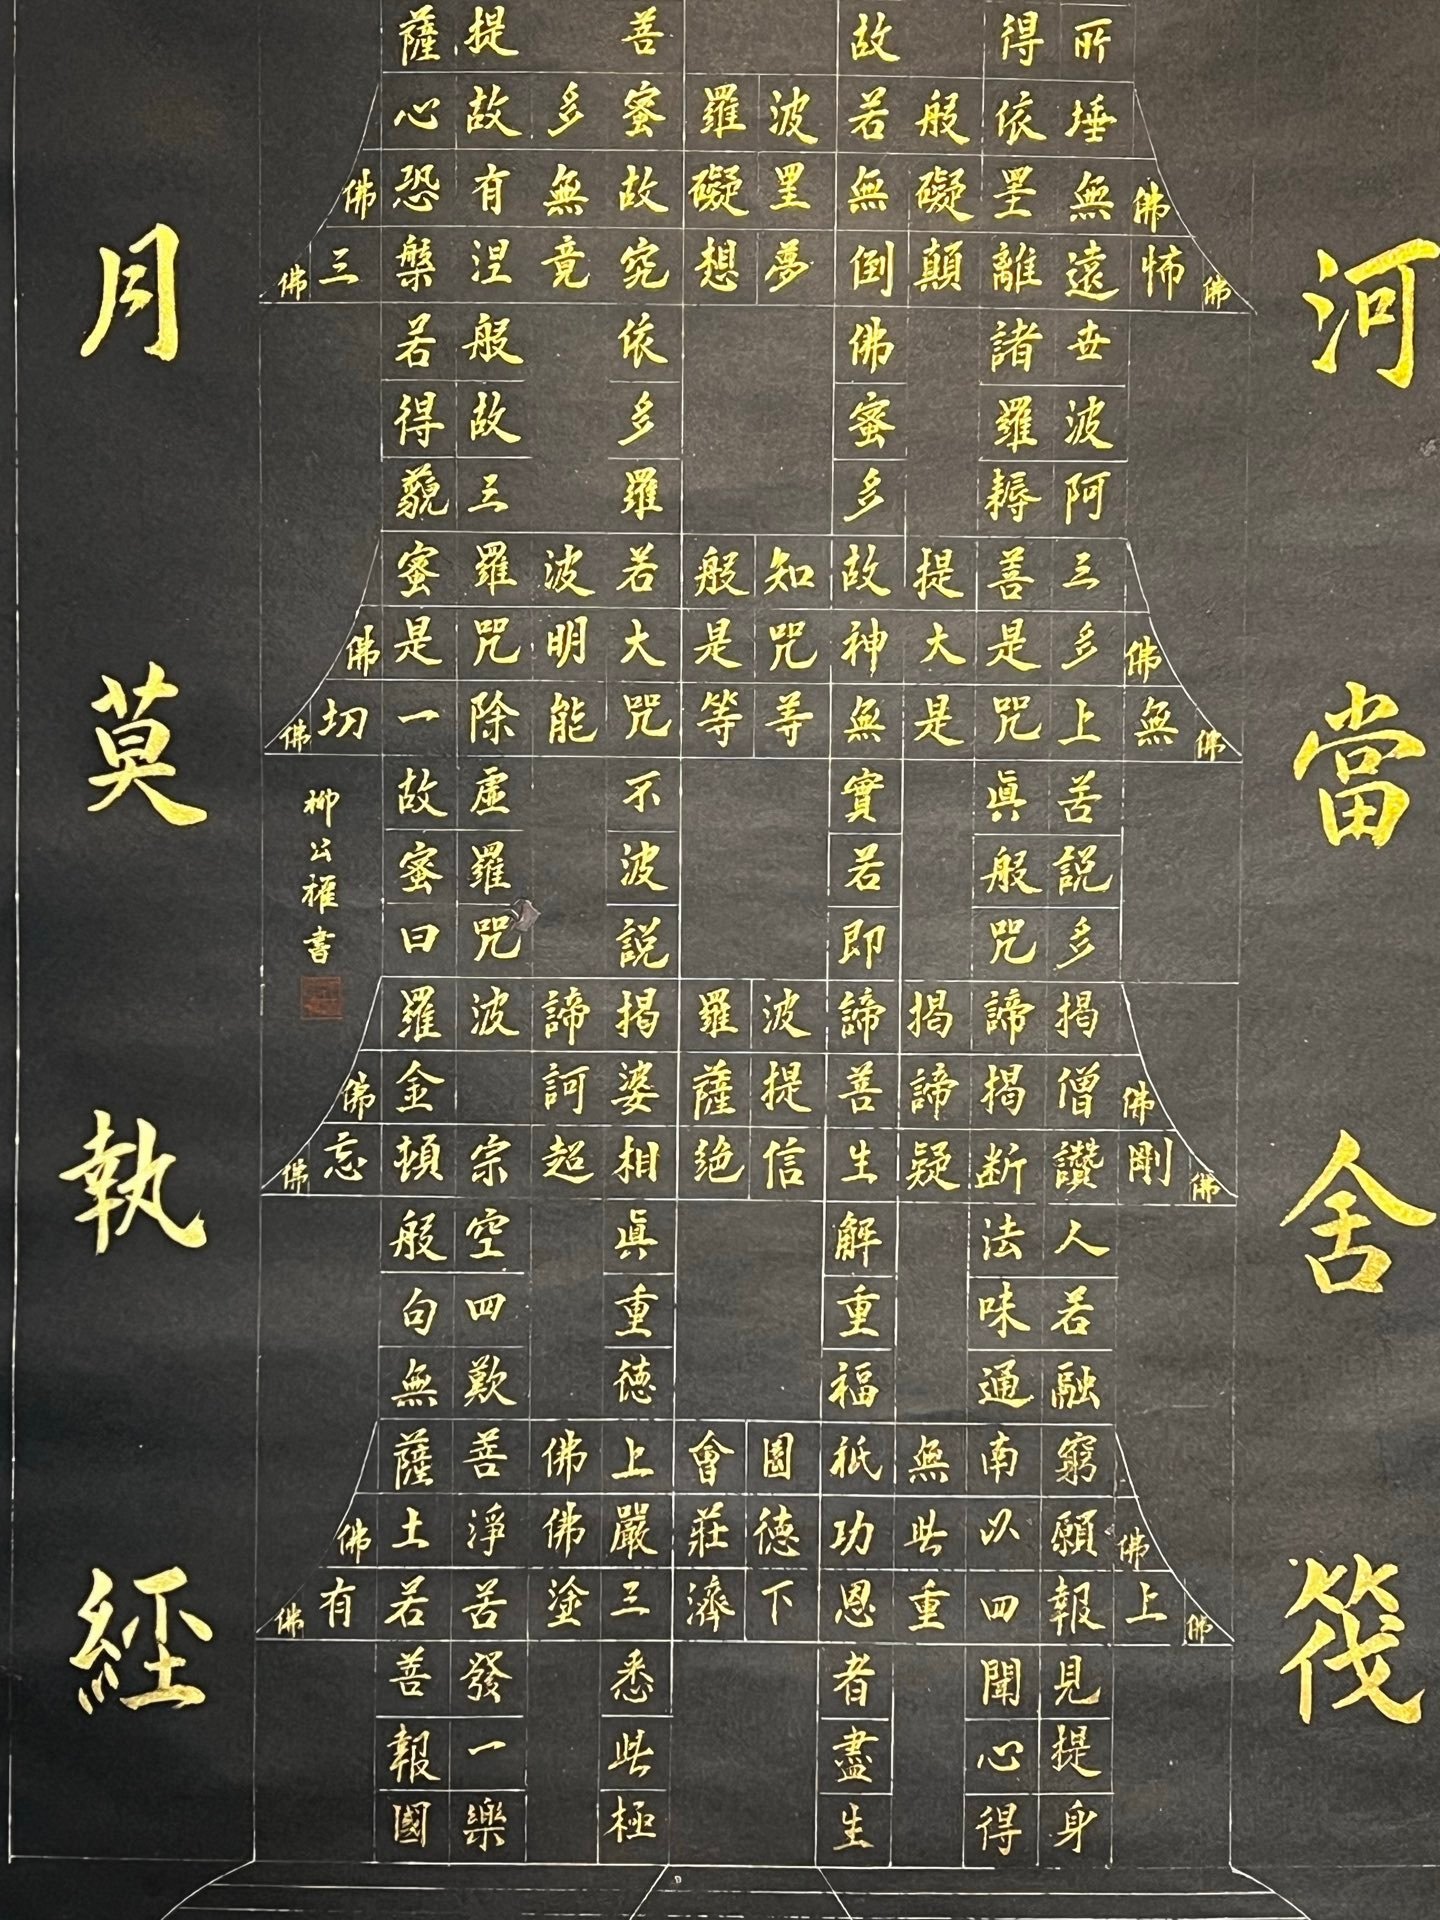 河當舍筏
所得故菩提薩
埵依般若波羅蜜多故心
佛無罣礙無罣礙故無有恐佛
佛怖遠離顛倒夢想究竟涅槃三佛
世諸佛依般若
波羅蜜多故得
阿耨多羅三藐
三菩提故知般若波羅蜜
佛多是大神咒是大明咒是佛
佛無上咒是無等等咒能除一切佛
苦眞實不虛故
說般若波羅蜜
多咒即說咒曰
揭諦揭諦波羅揭諦波羅
佛僧揭諦菩提薩婆訶金佛
佛剛讚断疑生信絶相超宗頓忘佛
人法解眞空般
若味重重四句
融通福德歎無
窮南無祇園會上佛菩薩
佛願以此功德莊嚴佛淨土佛
佛上報四重恩下濟三塗苦若有佛
見聞者悉發菩
提心盡此一報
身得生極樂國
柳公權書
月莫執經